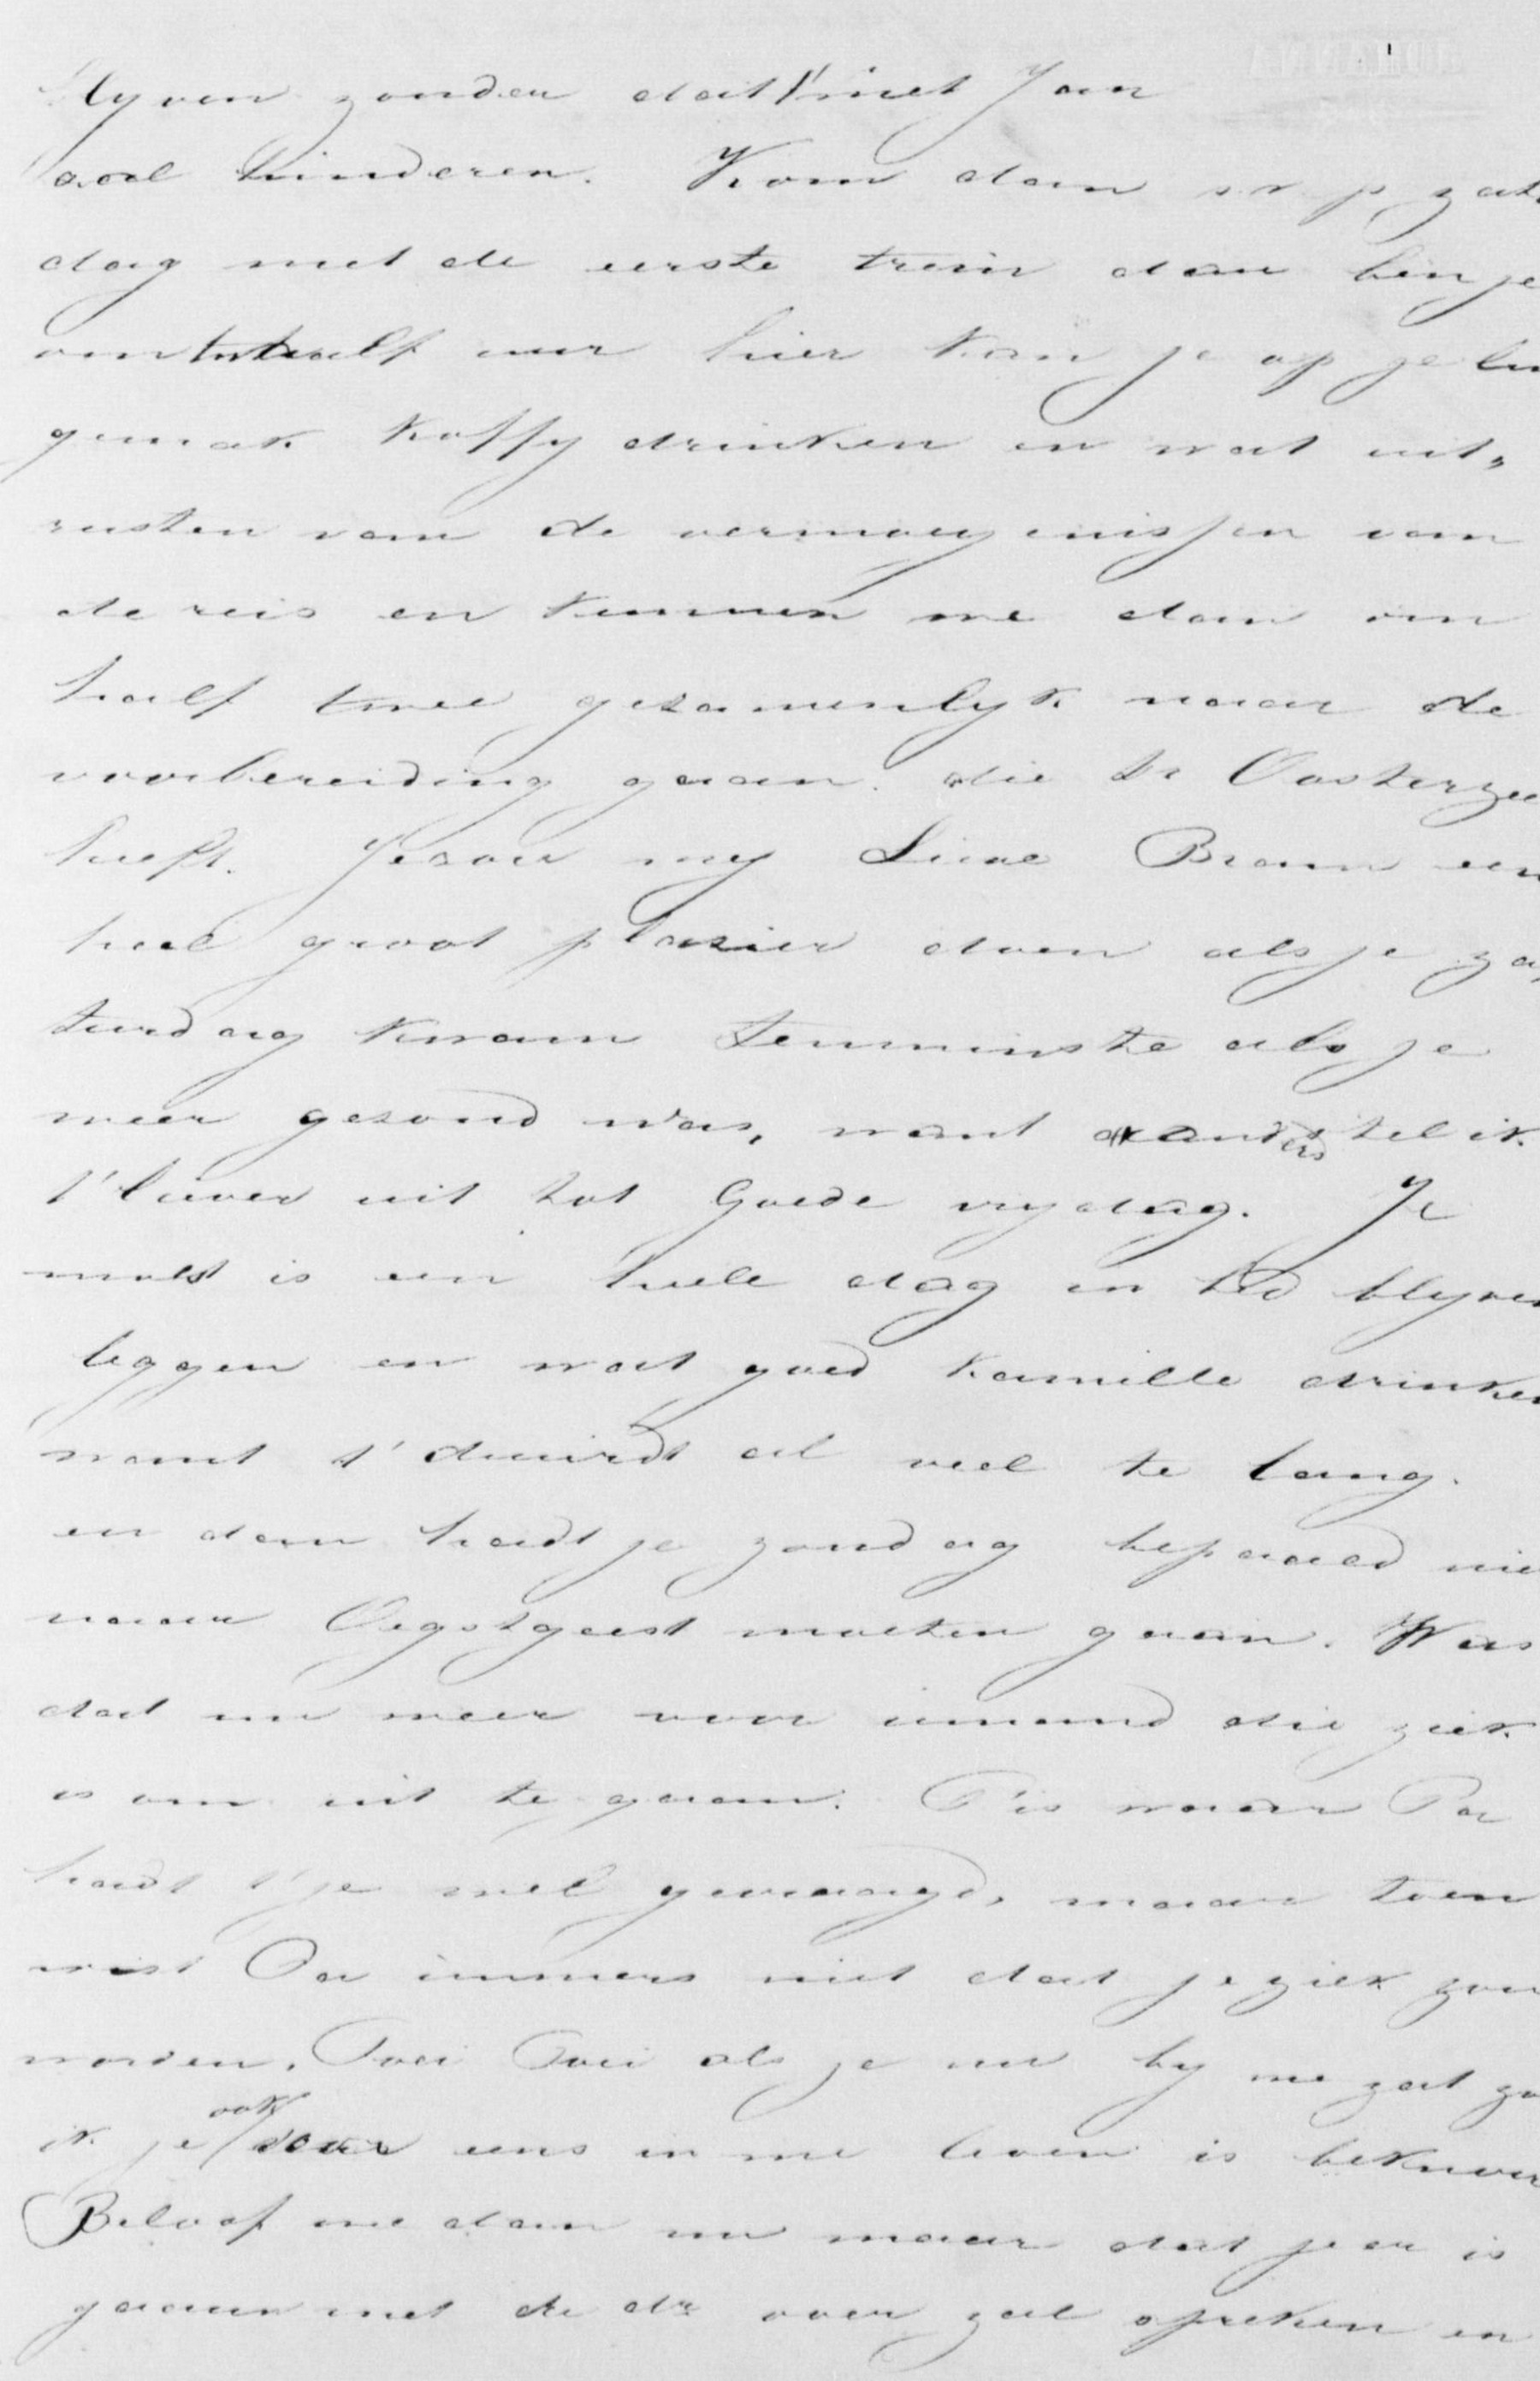 blyven zonder dat 't met Jan
zal hinderen. Kom dan svp zat
dag met de eerste trein dan ben je
om twaalf uur hier kan je op je
gemak koffy drinken en wat uit„
rusten van de vermoeyenissen van
de reis en kunnen we dan om
half twee gesamenlyk naar de
voorbereiding gaan. die Dr Oosterzee
heeft. Je zou my Lieve Bram een
heel groot plasier doen als je za„
turdag kwam temminste als je
weer gesond was, want anders stel ik
t'liever uit tot Goede vrydag. Je
most is een heele dag in bed blyven
leggen en wat goed kamille drinken
want t'duurdt al veel te lang.
en dan hadt je zondag bepaald nie
naar Oegstgeest moeten gaan. Was
dat nu weer voor iemand die ziek
is om uit te gaan. T'is waar Pa
hadt t'je wel gevraagd, maar toen
wist Pa immers niet dat je ziek zou
worden. Foei Foei als je nu by me zat zo
ik je ook voor eens in me leven is beknorr
Beloof me dan nu maar dat je er is
gaauw met de dr over zal spreken en